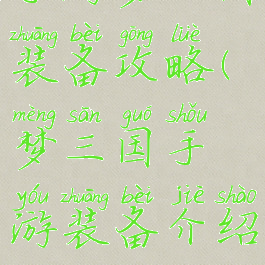 zhuāng bèi gōng lüè
装备攻略(
mèng sān guó shǒu
梦三国手
yóu zhuāng bèi jiè shào
游装备介绍